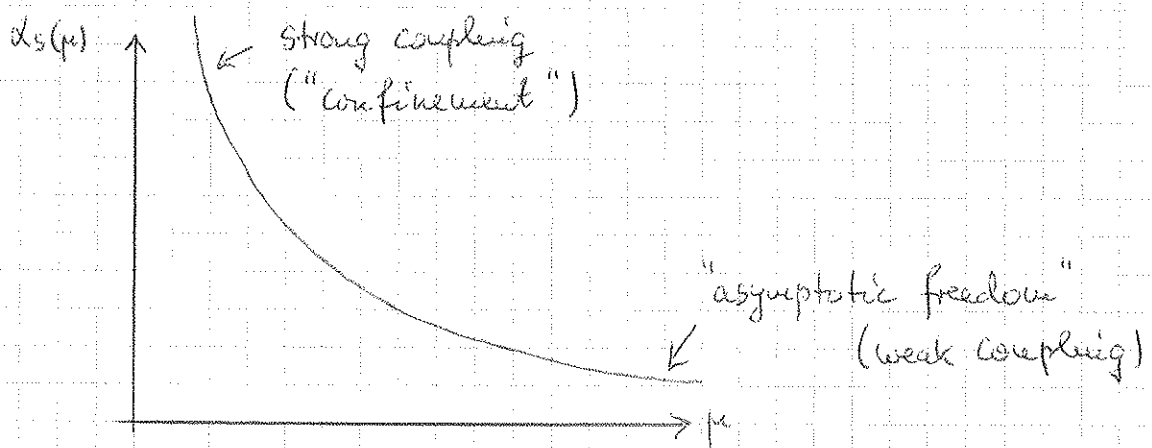 αs(μ)
strong coupling
("confinement")
"asymptotic freedom"
(weak coupling)
μ